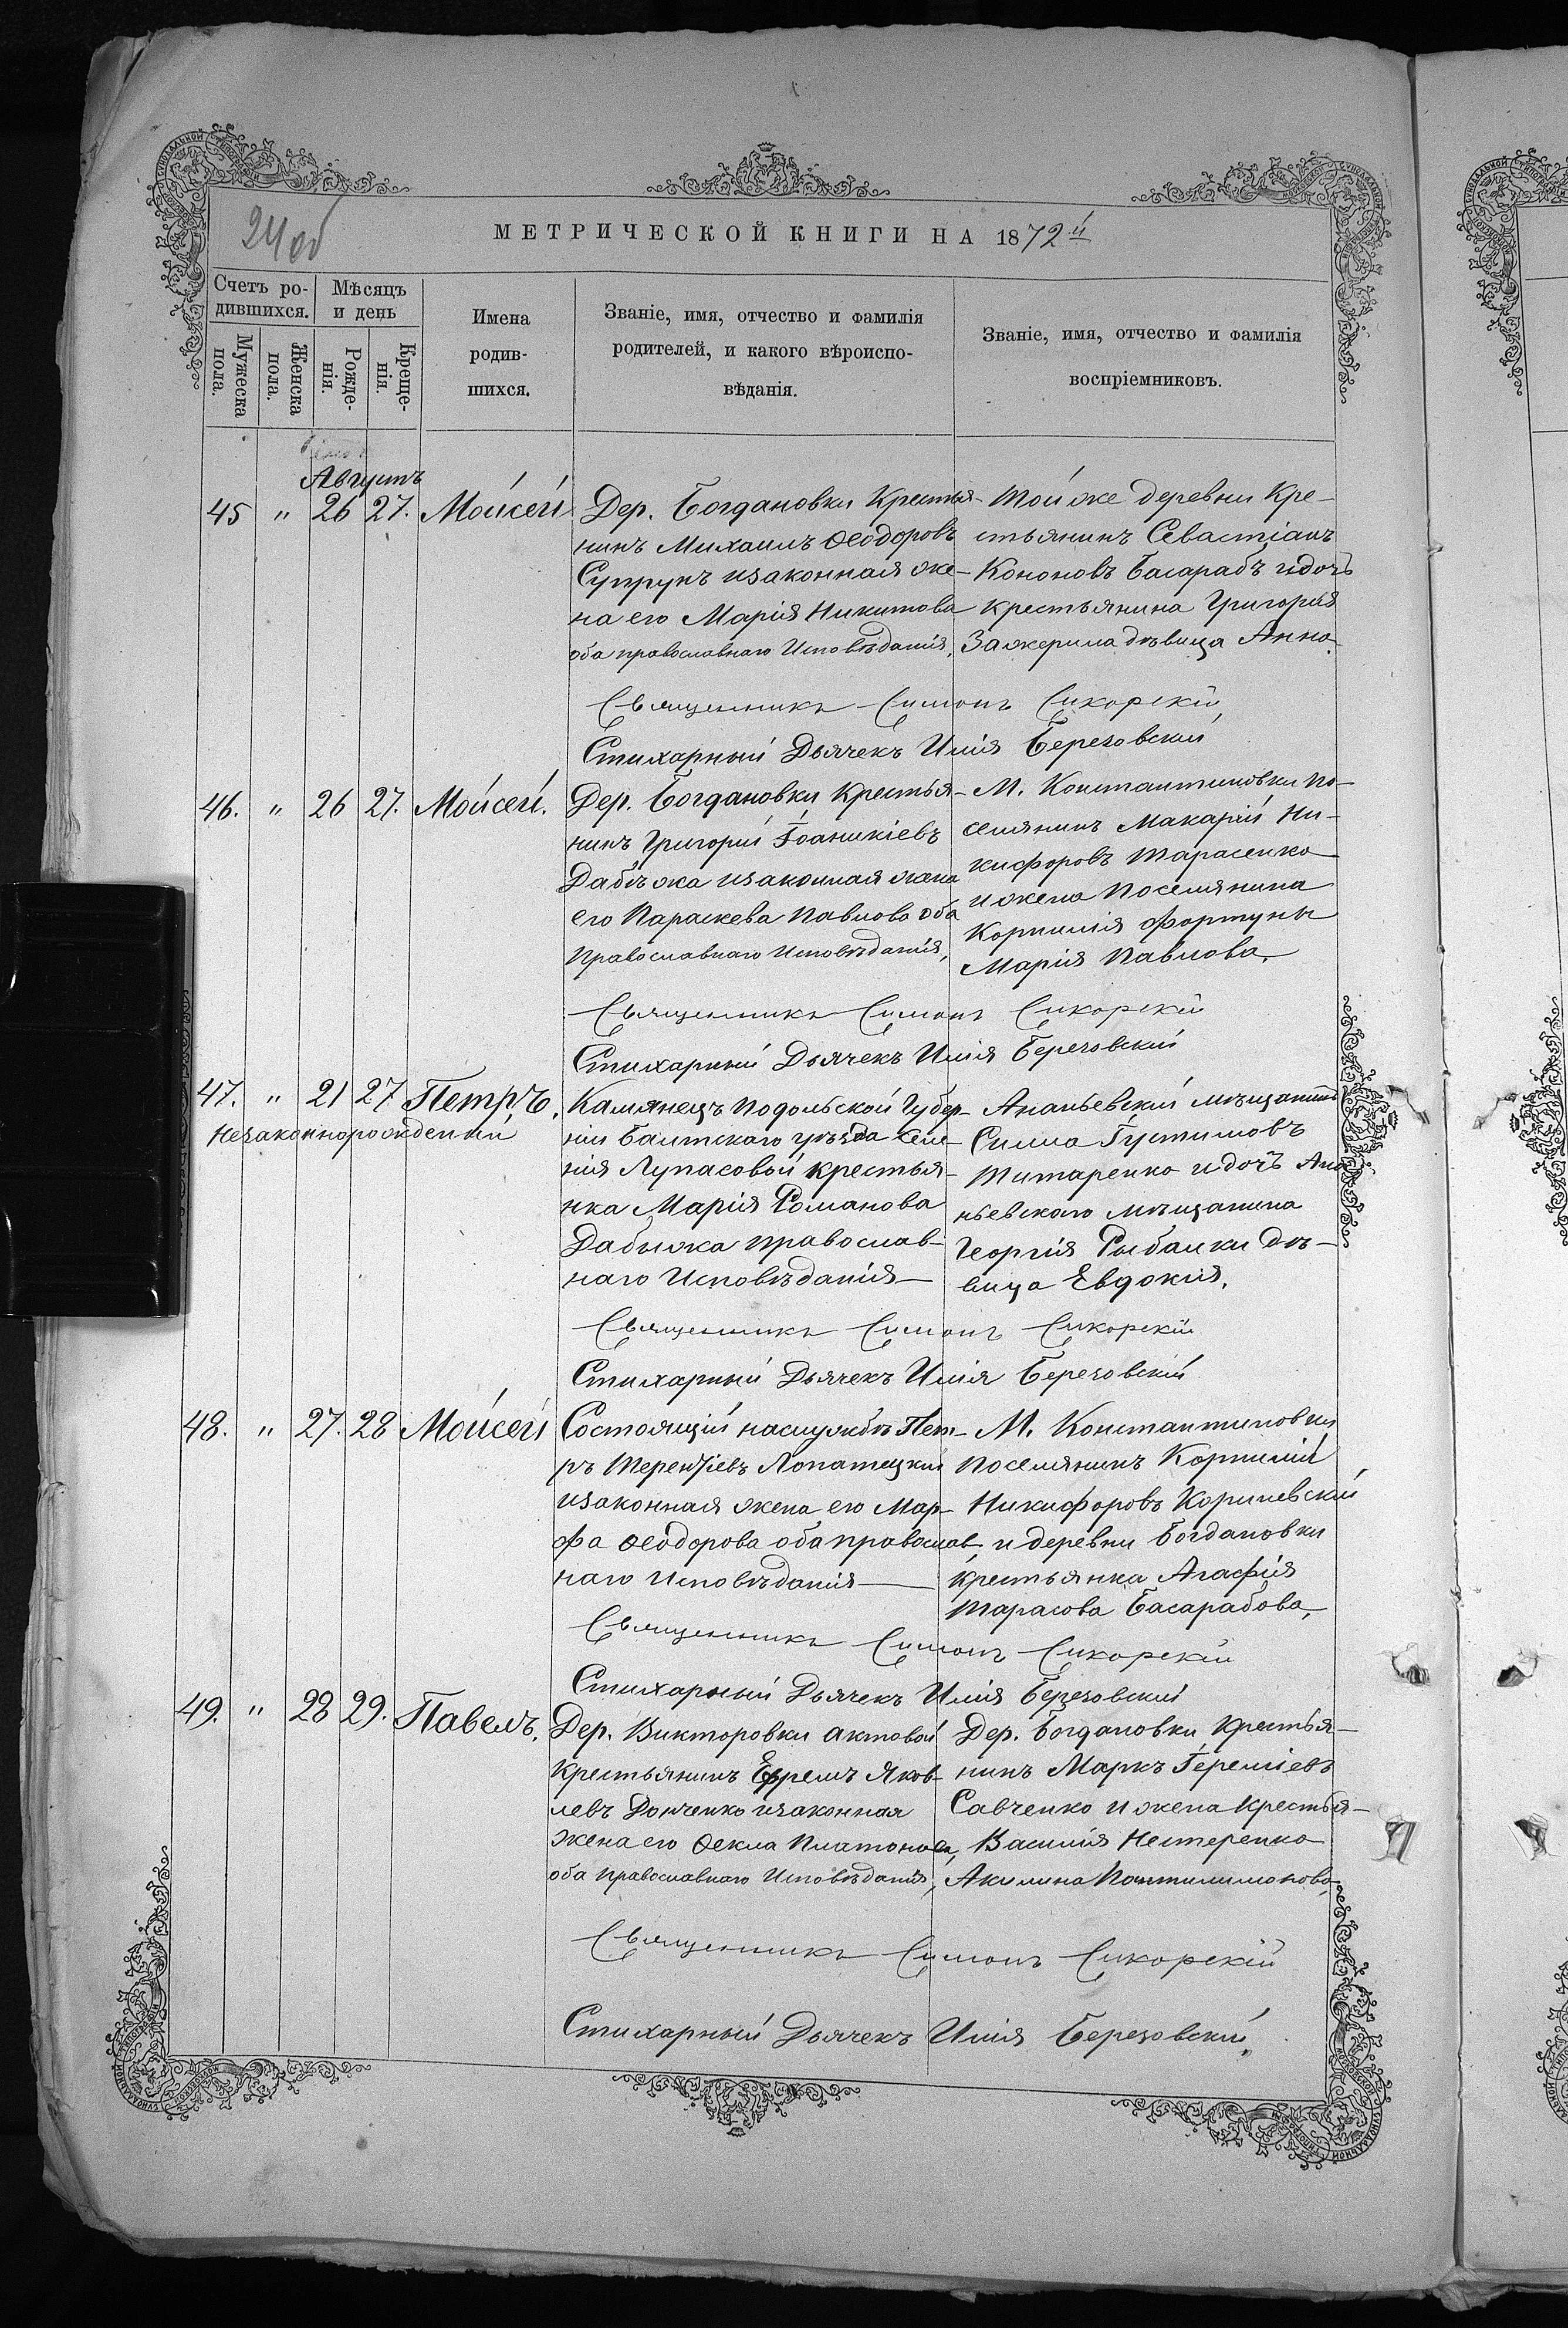 24об
МЕТРИЧЕСКОЙ КНИГИ НА 1872й
Счетъ ро-
дившихся.
Мужеска
пола.
Женска
пола.
Мѣсяцъ
и день
Рожде-
нія.
Креще-
нія.
Имена
родив-
шихся.
Званіе, имя, отчество и фамилія
родителей, и какого вѣроиспо-
вѣданія.
Званіе, имя, отчество и фамилія
воспріемниковъ.
Августъ
45 " 26 27. Мойсей
Дер. Богдановки Крестья-
нинъ Михаилъ Ѳеодоровъ
Супрунъ изаконная же-
на его Марія Никитова
оба православнаго Исповѣданія,
Той же деревни Кре-
стьянинъ Севастіанъ
Кононовъ Басарабъ идочь
крестьянина Григорія
Зажерила дѣвица Анна.
Священникъ Симонъ Сикорскій
Стихарный Дьячекъ Илія Березовскій
46. " 26 27. Мойсей.
Дер. Богдановки Крестья-
нинъ Григорій Іоаникіевъ
Дабѣжа изаконная жена
его Параскева Павлова оба
Православнаго Исповѣданія,
М. Константиновки По-
селянинъ Макарій Ни-
кифоровъ Тарасенко
и жена Поселянина
Корнилія Фортуны
Марія Павлова.
Священникъ Симонъ Сикорскій
Стихарный Дьячекъ Илія Березовскій
47. " 21 27 Петръ.
Незаконнорожденный
Камянецъ Подольской Губер-
ніи Балтскаго уѣзда селе-
нія Лупасовой крестья-
нка Марія Романова
Дабижа православ-
наго Исповѣданія
Ананьевскій мѣщанинъ
Силла Густимовъ
Титаренко и дочь Ана
ньевскаго мѣщанина
Георгія Рыбалки дѣ-
вица Евдокія.
Священникъ Симонъ Сикорскій
Стихарный Дьячекъ Илія Березовскій
48. " 27. 28 Мойсей
Состоящій наслужбѣ Пет-
ръ Терентіевъ Лопатецкій
изаконная жена его Мар-
фа Ѳеодорова оба православ-
наго Исповѣданія
М. Константиновки
Поселянинъ Корнилій
Никифоровъ Кориневскій
и деревни Богдановки
Крестьянка Агафія
Тарасова Басарабова,
Священникъ Симонъ Сикорскій
Стихарный Дьячекъ Илія Березовскій
49. " 28 29. Павелъ.
Дер. Викторовки актовой
Крестьянинъ Ефремъ Яков-
левъ Донченко изаконная
жена его Ѳекла Платонова,
оба Православнаго Исповѣданія,
Дер. Богдановки Крестья-
нинъ Маркъ Іереміевъ
Савченко и жена Крестья-
Василія Нестеренка
Акилина Пантилимонова.
Священникъ Симонъ Сикорскій
Стихарный Дьячекъ Илія Березовскій.